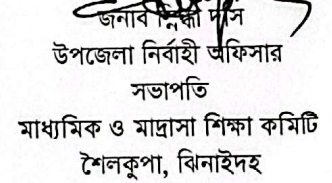 জনাব স্নিগ্ধা দাস
উপজেলা নির্বাহী অফিসার
সভাপতি
মাধ্যমিক ও মাদ্রাসা শিক্ষা কমিটি
শৈলকুপা, ঝিনাইদহ